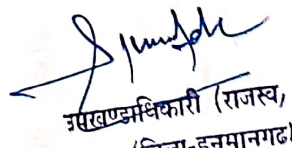 उपखण्डाधिकारी (राजस्व)
(जिला-हनुमानगढ़)